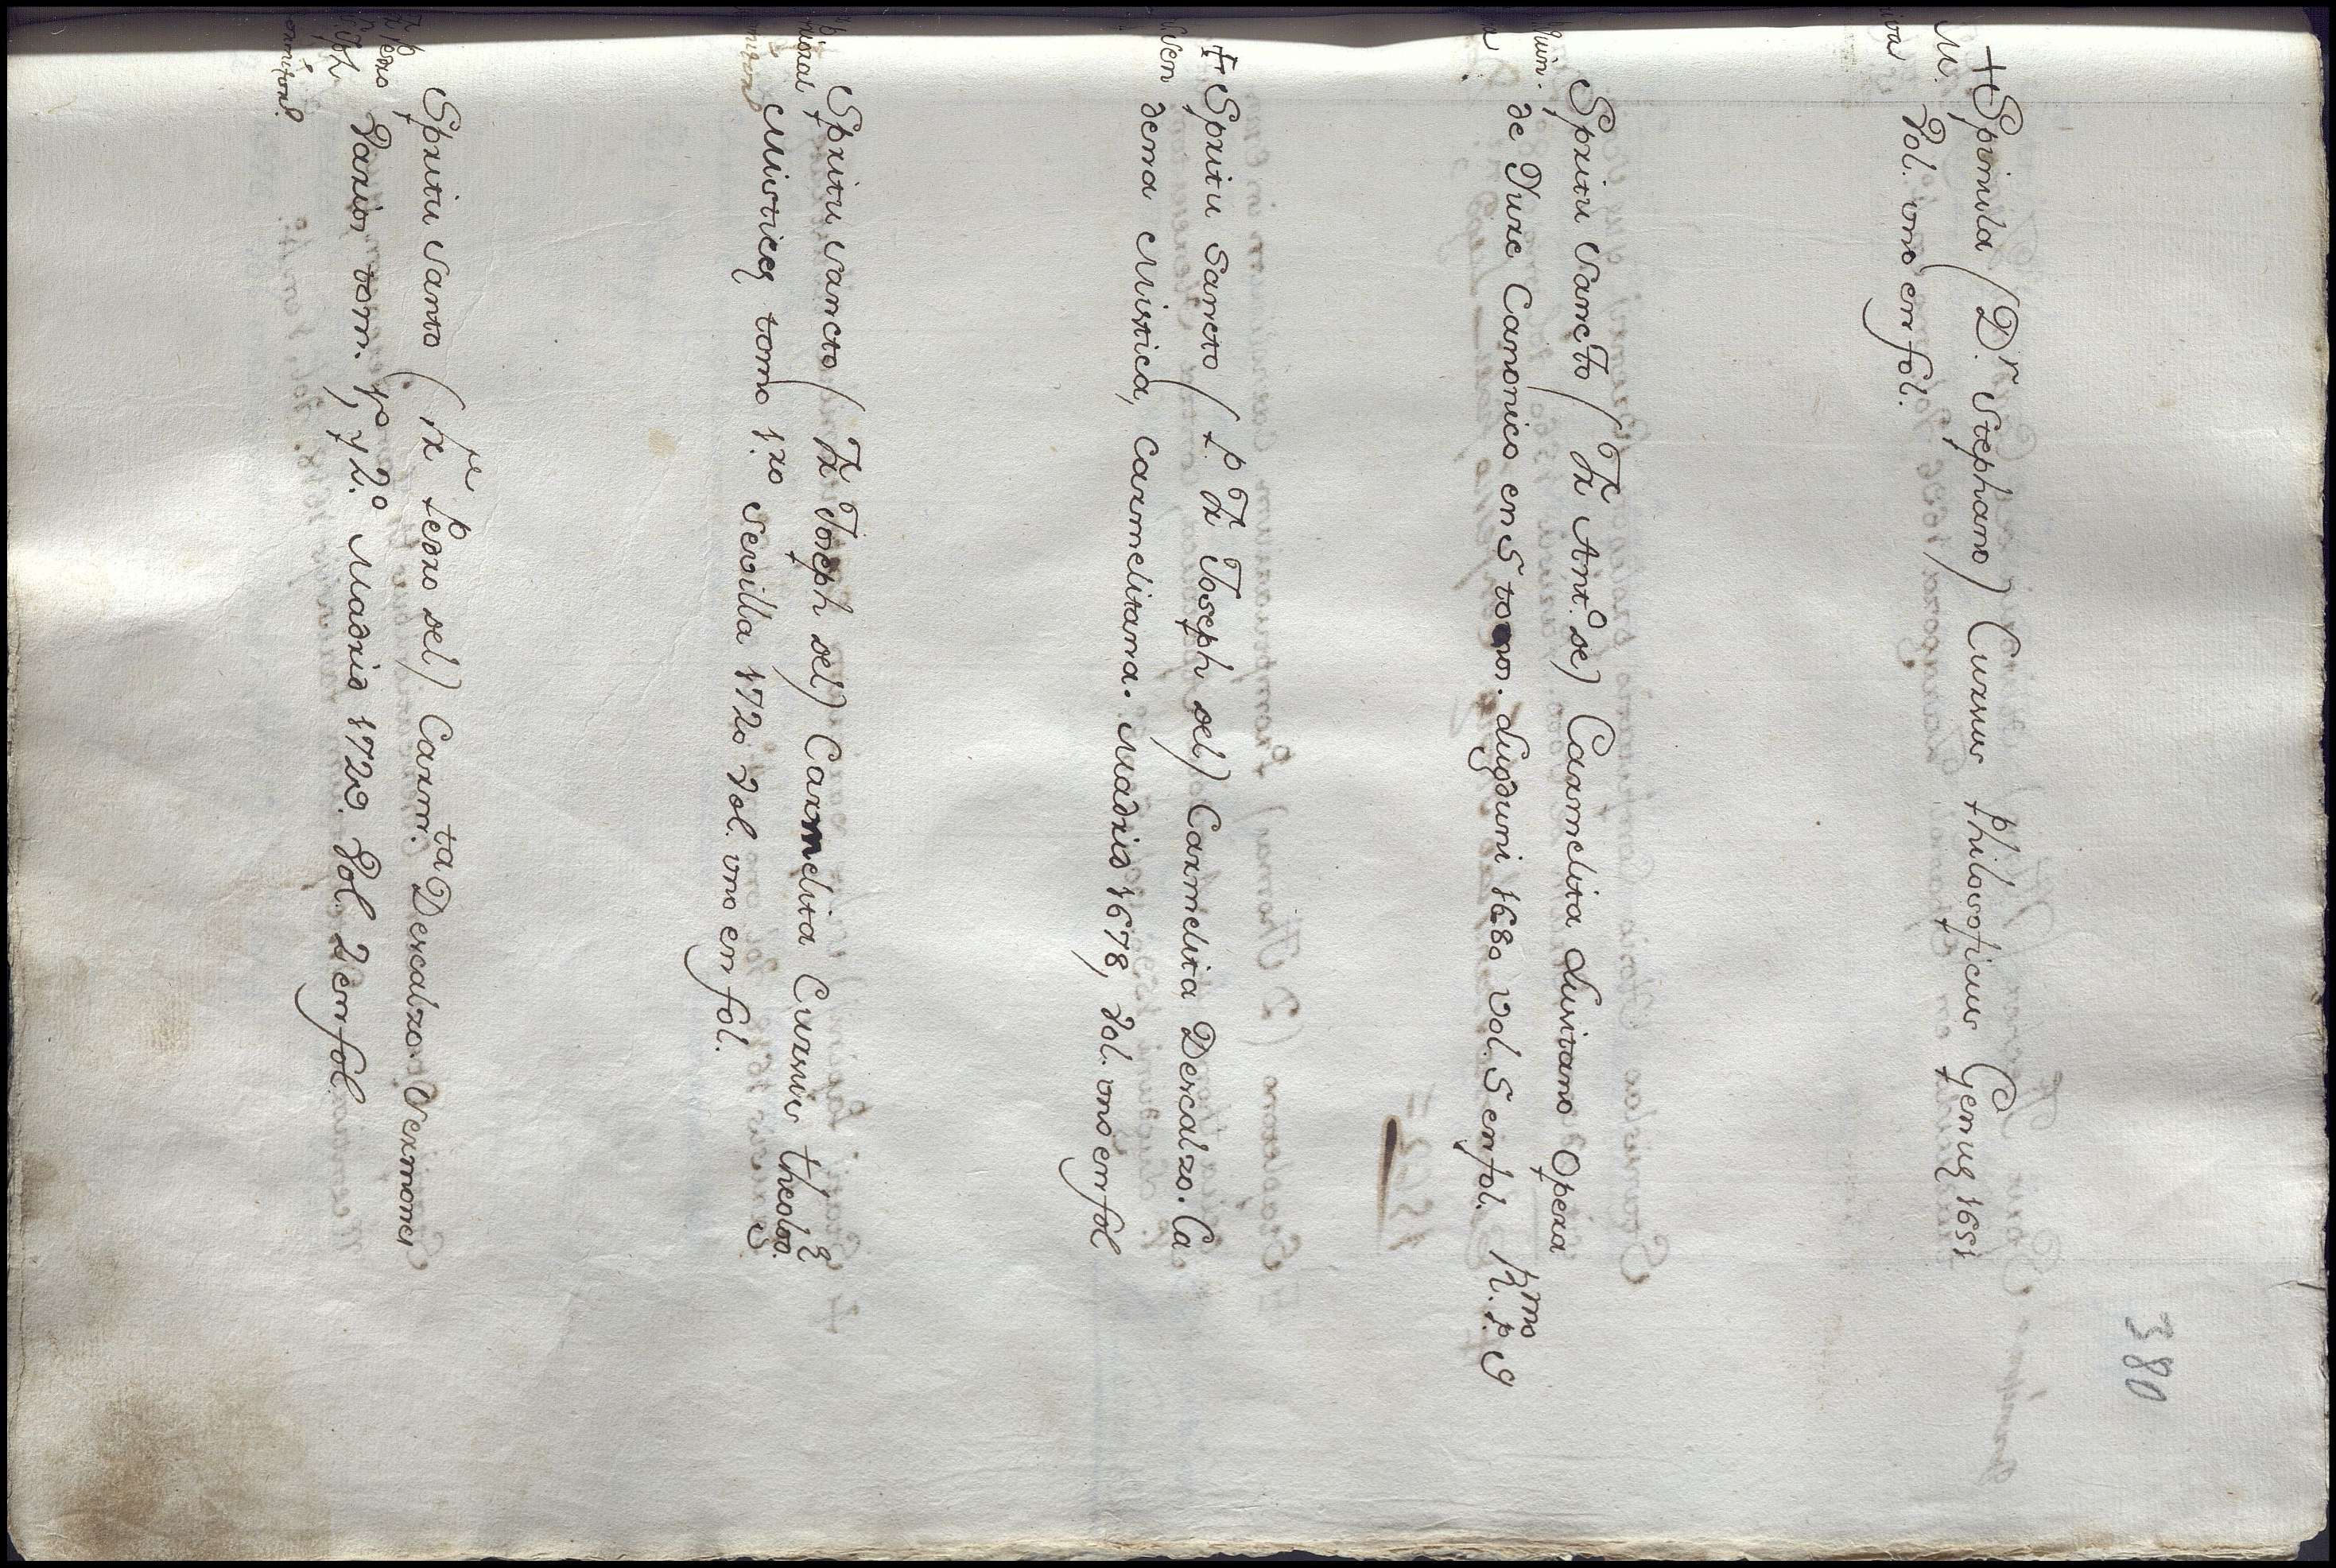 380
+ Spinula (D.r Stephano) Cursus Philosoficus Genuę 1651
Vol. uno en fol.
Spritu Sancto (Fr Ant.o de) Carmelita Lusitano Opera
de Jure Canonico en 5 tomos. Lugduni 1680 vol. 5 en fol. R.mo P. S
+ Spritu Sancto (P Fr Joseph del) Carmelita Descalzo. Ca
dena Mistica, Carmelitana. Madrid 1678, Vol. uno en fol
Spritu Sancto (Fr Joseph del) Carmelita Cursus Theolog.
Misticę tomo 1.ro Sevilla 1720 Vol. uno en fol.
Spritu Santo (Fr Pedro del) Carm.ta Descalzo. Sermones
Varios tom. 1.o y 2.o Madrid 1722. Vol. 2 en fol.